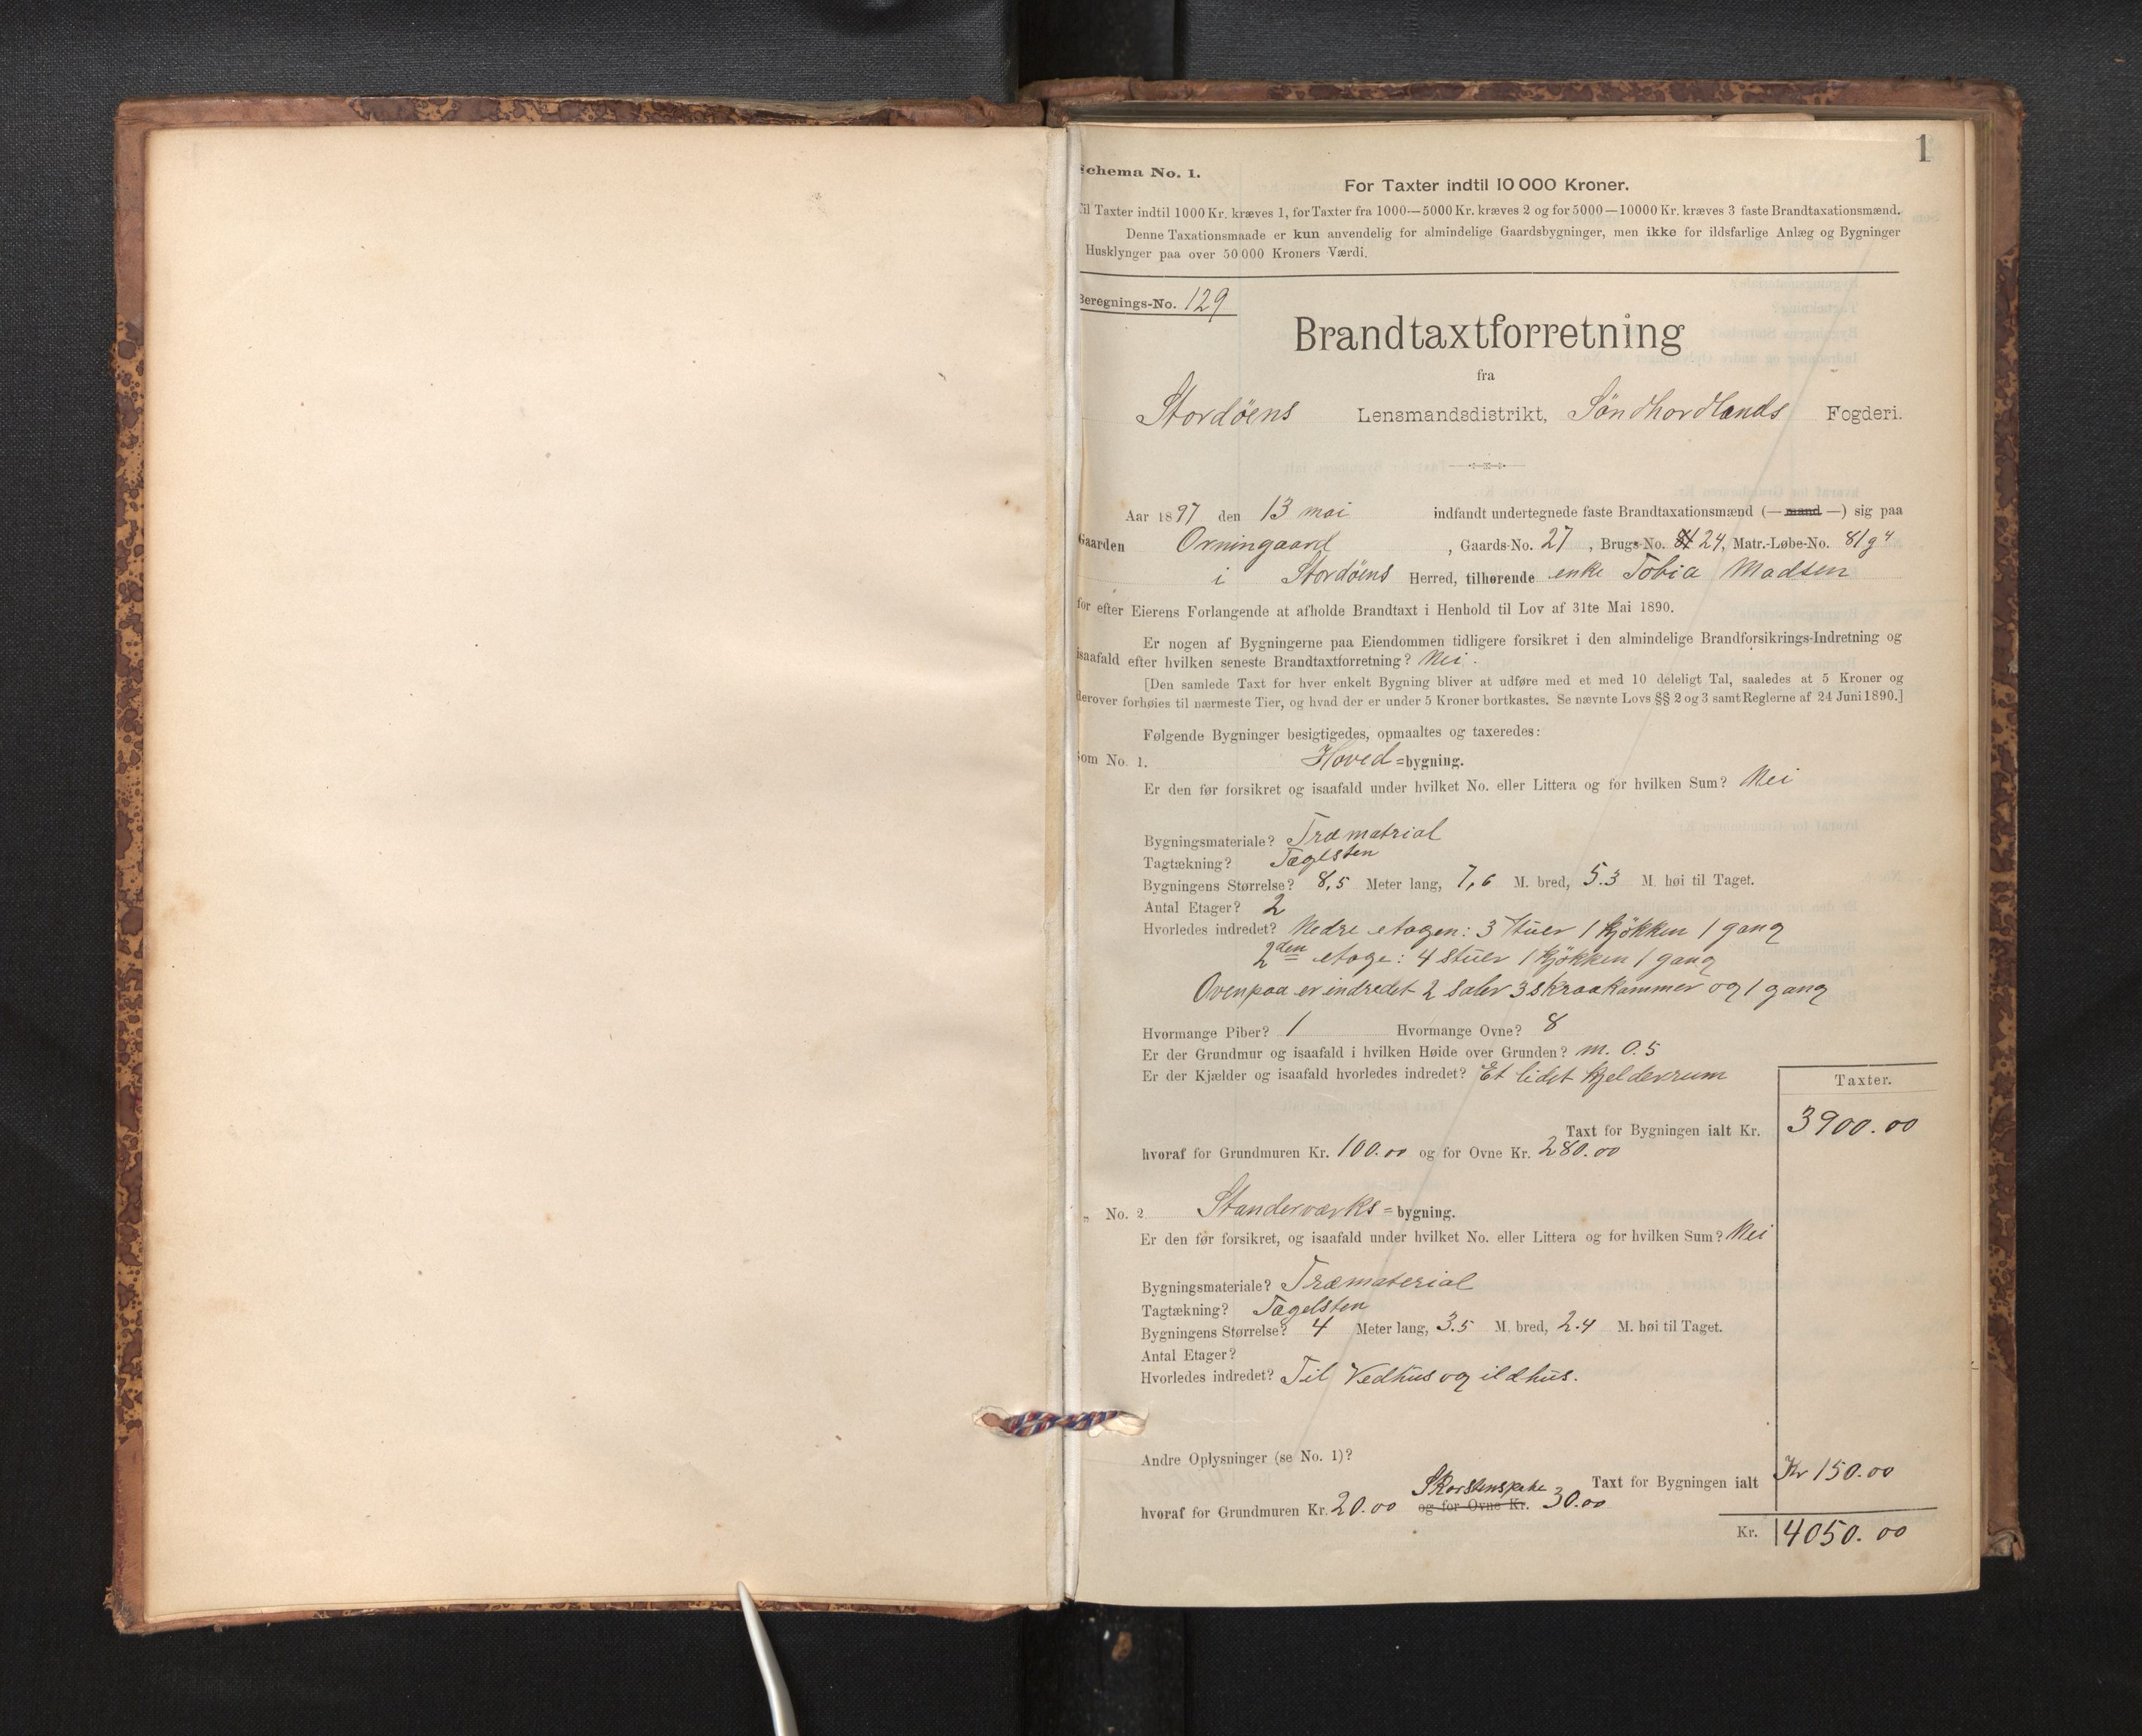 1
Schema No. 1.
For Taxter indtil 10 000 Kroner.
Til Taxter indtil 1000 Kr. kræves 1, for Taxter fra 1000—5000 Kr. kræves 2 og for 5000—10000 Kr. kræves 3 faste Brandtaxationsmænd.
Denne Taxationsmaade er kun anvendelig for almindelige Gaardsbygninger, men ikke for ildsfarlige Anlæg og Bygninger
Husklynger paa over 50 000 Kroners Værdi.
Beregnings-No. 129
Brandtaxtforretning
fra
Stordöens Lensmandsdistrikt, Söndhordlands Fogderi.
Aar 1897 den 13 mai indfandt undertegnede faste Brandtaxationsmænd (— mand —) sig paa
Gaarden Orningaard, Gaards-No. 27, Brugs-No. 24, Matr.-Løbe-No. 81g4
i Stordöens Herred, tilhørende enke Tobia Madsen
for efter Eierens Forlangende at afholde Brandtaxt i Henhold til Lov af 31te Mai 1890.
Er nogen af Bygningerne paa Eiendommen tidligere forsikret i den almindelige Brandforsikrings-Indretning og
isaafald efter hvilken seneste Brandtaxtforretning? Nei.
[Den samlede Taxt for hver enkelt Bygning bliver at udføre med et med 10 deleligt Tal, saaledes at 5 Kroner og
derover forhøies til nærmeste Tier, og hvad der er under 5 Kroner bortkastes. Se nævnte Lovs §§ 2 og 3 samt Reglerne af 24 Juni 1890.]
Følgende Bygninger besigtigedes, opmaaltes og taxeredes:
Som No. 1. Hoved=bygning.
Er den før forsikret og isaafald under hvilket No. eller Littera og for hvilken Sum? Nei
Bygningsmateriale? Træmatrial
Tagtækning? Tæglsten
Bygningens Størrelse? 8,5 Meter lang, 7,6 M. bred, 5.3 M. høi til Taget.
Antal Etager? 2
Hvorledes indredet? Nedre etagen: 3 stuer 1 kjökken 1 gang
2den etage: 4 stuer 1 kjökken 1 gang
Ovenpaa er indredet 2 saler 3 skraakammer og 1 gang
Hvormange Piber? 1 Hvormange Ovne? 8
Er der Grundmur og isaafald i hvilken Høide over Grunden? m. 0.5
Er der Kjælder og isaafald hvorledes indredet? Et lidet kjelderrum
Taxter.
Taxt for Bygningen ialt Kr. 3900.00
hvoraf for Grundmuren Kr. 100.00 og for Ovne Kr. 280.00
„ No. 2 Standerværks=bygning.
Er den før forsikret, og isaafald under hvilket No. eller Littera og for hvilken Sum? Nei
Bygningsmateriale? Træmaterial
Tagtækning? Tægelsten
Bygningens Størrelse? 4 Meter lang, 3.5 M. bred, 2.4 M. høi til Taget.
Antal Etager?
Hvorledes indredet? Til Vedhus og ildhus.
Andre Oplysninger (se No. 1)?
Taxt for Bygningen ialt Kr 150.00
hvoraf for Grundmuren Kr. 20.00 og for Ovne Kr. 30.00
Kr. 4050.00